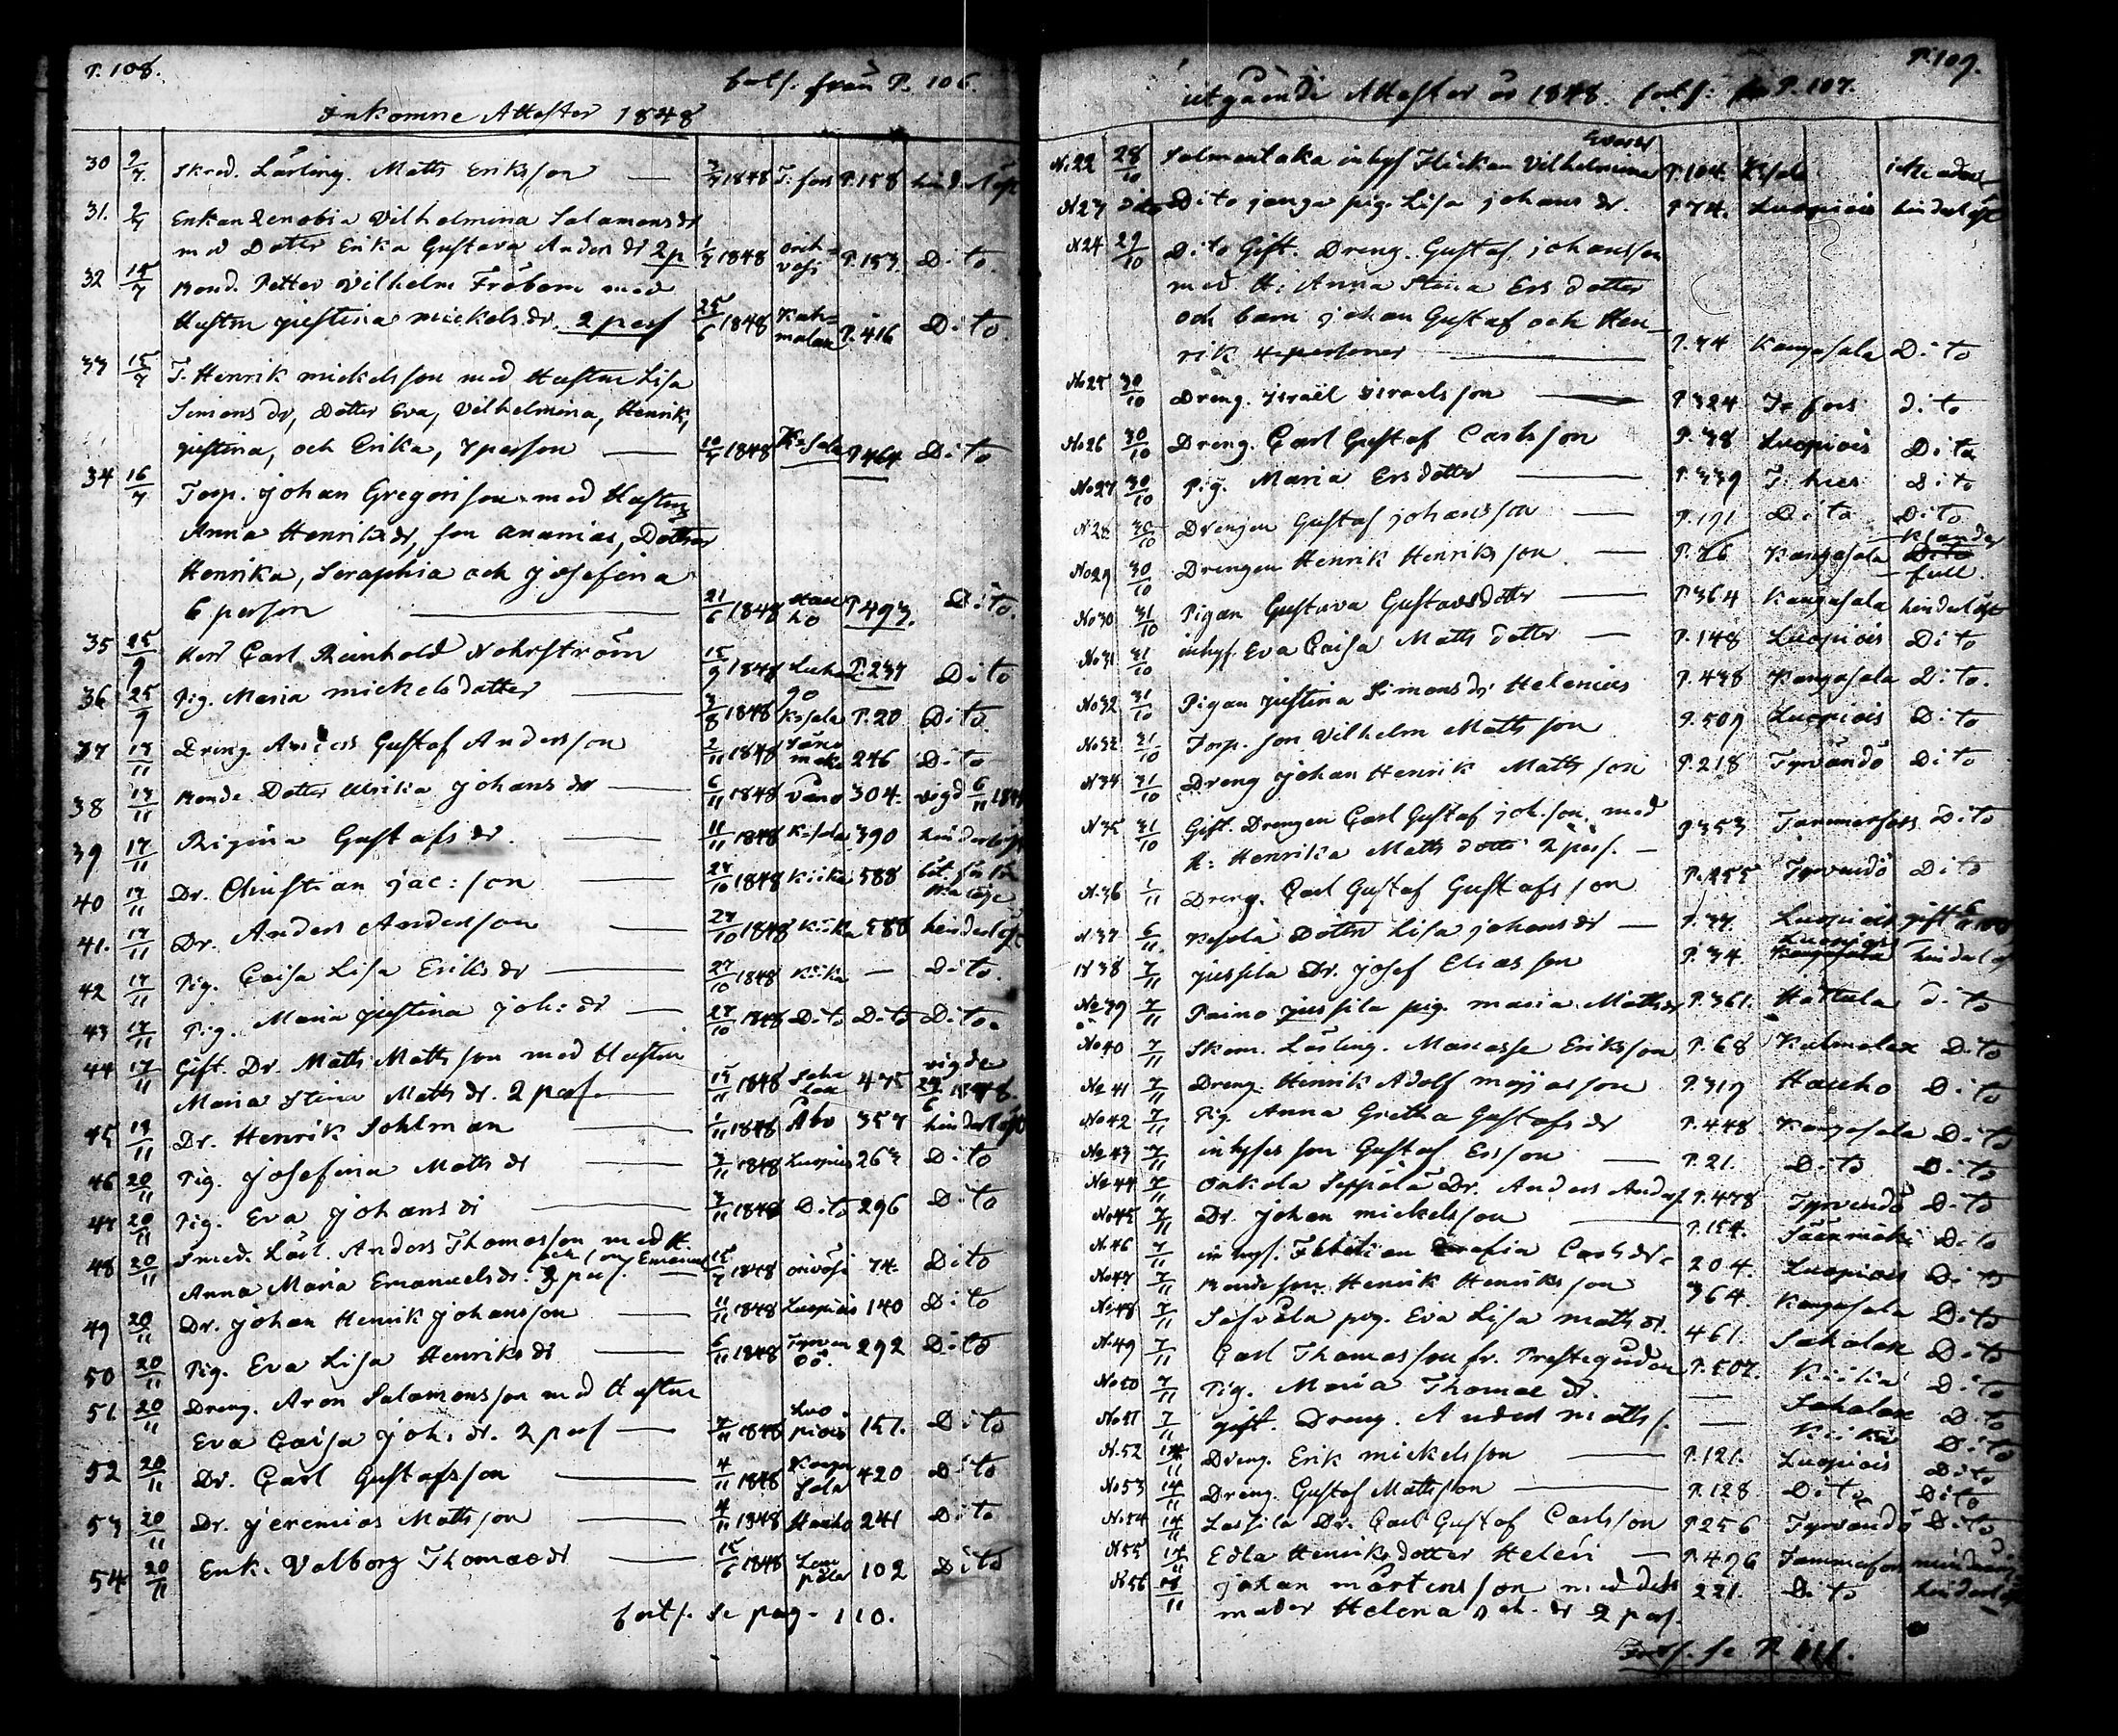 P. 108.
forts. från P. 106.
Inkomne Attester 1848
30 2/7. Skred. Lärling. Matts Eriksson — 3/7 1848 T: fors P. 158 hinderlös
31. 2/7 Enkan Zenobia Vilhelmina Salamons dr
med Dotter Erika Gustava Anders dr 2 p 1/7 1848 orih= vesi P. 153. Dito.
32 15/7 Bond. Petter Vilhelm Fröbom med
Hustru justina mickels dr. 2 pers 25/6 1848 Kal= malax P. 416 Dito.
33 15/7 T. Henrik mickelsson med Hustru Lisa
Simons dr, Dotter Eva, Vilhelmina, Henrik,
justina, och Erika, 7 person — 10/7 1848 K=sala P 464 Dito
34 16/7 Torp. Johan Gregorisson med Hustru
Anna Henriks dr, son ananias, Döttrar
Henrika, Seraphia och Josefina
6 person — 21/6 1848 Hau ho P. 493. Dito.
35 25/9 Herr Carl Reinhold Nohrström 15/9 1848 P. 237 Dito
36 25/9 Pig. Maria mickelsdotter — 3/8 1848 K=sala P. 20 Dito
37 17/11 Dreng. Anders Gustaf Andersson 2/11 1848 Jäms 246 Dito
38 17/11 Bonde Dotter Ulrika Johans dr — 6/11 1848 Våno 304. vigd 6/11 1848
39 17/11 Regina Gustafs dr. — 11/11 1848 K=sala 390 hinderlös
40 17/11 Dr. Christian jac: son — 27/10 1848 Kiika 588
41. 17/11 Dr. Anders Andersson — 27/10 1848 Kiika 588 hinderlös
42 17/11 Pig. Caisa Lisa Eriks dr — 27/10 1848 Kiika — Dito.
43 17/11 Pig. Maria justina joh: dr — 27/10 1848 Dito Dito Dito.
44 17/11 Gift. Dr. Matts Mattsson med Hustru
Maria Stina Matts dr. 2 pers. — 15/11 1848 Saha lax 475 vigde 24/6 1848.
45 17/11 Dr. Henrik Sohlman — 1/11 1848 Åbo 357 hinderlös
46 20/11 Pig. Josefina Matts dr — 3/11 1848 Luopiois 263 Dito
47 20/11 Pig. Eva Johans dr — 3/11 1848 Dito 296 Dito
48 20/11 Smed. Lärl. Anders Thomasson med H.
Anna Maria Emanuels dr. och son Emanuel 3 pers. — 15/7 1848 orivesi 74. Dito
49 20/11 Dr. Johan Henrik Johansson — 11/11 1848 Luopiois 140 Dito
50 20/11 Pig. Eva Lisa Henriks dr — 6/11 1848 Tyrven dö. 292 Dito
51 20/11 Dreng. Aron Salamonsson med Hustru
Eva Caisa Joh. dr. 2 pers — 7/11 1848 Luo piois 157. Dito
52 20/11 Dr. Carl Gustafsson — 4/11 1848 Kanga sala 420 Dito
53 20/11 Dr. Jeremias Mattsson — 4/11 1848 Hauho 241 Dito
54 20/11 Enk. Valborg Thomae dr — 15/6 1848 Lem päla 102 Dito
forts. se pag. 110.
P. 109.
utgående Attester år 1848. forts: fr P. 107.
Evasdr
N. 22 28/10 Salmentaka inhys Flickan Vilhelmina P. 104. K=sala
N 23 dito Dito jonga pig. Lisa Johans dr. P 74. Luopiois hinderlös
N 24 29/10 Dito Gift. Dreng. Gustaf Johansson
med. H: Anna Stina Ers dotter
och barn Johan Gustaf och Hen-
rik 4 personer — P. 74 Kangasala Dito
No 25 30/10 Dreng. Israël Israelsson — P 324 T: fors Dito
No 26 30/10 Dreng. Carl Gustaf Carlsson P. 38 Luopiois Dito
No 27 30/10 Pig. Maria Ersdotter — P. 339 Dito
N. 28 30/10 Drengen Gustaf Johansson — P. 191 Dito Dito
No 29 30/10 Drengen Henrik Henriksson — P. 76 Kangasala
No 30 31/10 Pigan Gustava Gustavsdotter — P 364 Kangasala hinderlöst
No 31 31/10 inhys Eva Caisa Matts dotter — P. 148 Luopiois Dito
No 32 31/10 Pigan justina Simons dr Helenius P. 438 Kangasala Dito.
No 33 31/10 Torp. son Vilhelm Mattsson P. 509 Luopiois Dito
N 34 31/10 Dreng Johan Henrik Mattsson P. 218 Tyrvändö Dito
N 35 31/10 Gift. Drengen Carl Gustaf joh. son. med
H: Henrika Matts dotter 2 pers. — P 353 Tammerfors Dito
N. 36 1/11 Dreng. Carl Gustaf Gustafsson P. 255 Tyrvendö Dito
N. 37 6/11. Dotter Lisa Johans dr — P. 37. Luopiois gift 6/11
N 38 7/11 jussila Dr. Josef Eliasson P. 34 Luopiois Kangasala hinderlös
No 39 7/11 Paino jussila pig. maria Matts dr P. 361. Hattula Dito
No 40 7/11 Skom. Lärling. Manasse Eriksson P. 68 Kalmalax Dito
No 41 7/11 Dreng. Henrik Adolf P. 319 Hauho Dito
No 42 7/11 Pig. Anna Gretha Gustafs dr P. 448 Kangasala Dito
No 43 7/11 inhyses son Gustaf Ersson — P. 21. Dito Dito
No 44 7/11 Onkola Seppälä Dr. Anders Anders P. 478 Tyrvendö Dito
No 45 7/11 Dr. Johan mickelsson — P. 154. Säaxmäki Dito
N. 46 7/11 inhys. Flickan Carls dr= 204. Luopiois Dito
No 47 7/11 Bonde son. Henrik Henriksson 364. Kangasala Dito
No 48 7/11 pig. Eva Lisa matts dr. 461. Sahalax Dito
N. 49 7/11 Carl Thomasson fr. Prestegården P. 507. Kiika Dito
No 50 7/11 Pig. Maria Thomae dr. — Sahalax Dito
No 51 7/11 gift. Dreng. Anders matts s. — Kiika Dito
N. 52 14/11 Dreng. Erik mickelsson — P. 121. Luopiois Dito
No 53 14/11 Dreng. Gustaf Mattsson — P. 128 Dito Dito
No 54 14/11 Lassila Dr. Carl Gustaf Carlsson P 256 Tyrvendö Dito
N. 55 14/11 Edla Henriksdotter Helén — P. 496 Tammerfors
N. 56 18/11 Johan mårtensson med dess
moder Helena Joh. dr 2 pers. 221. Dito hinderlös
Forts. se P. 111.